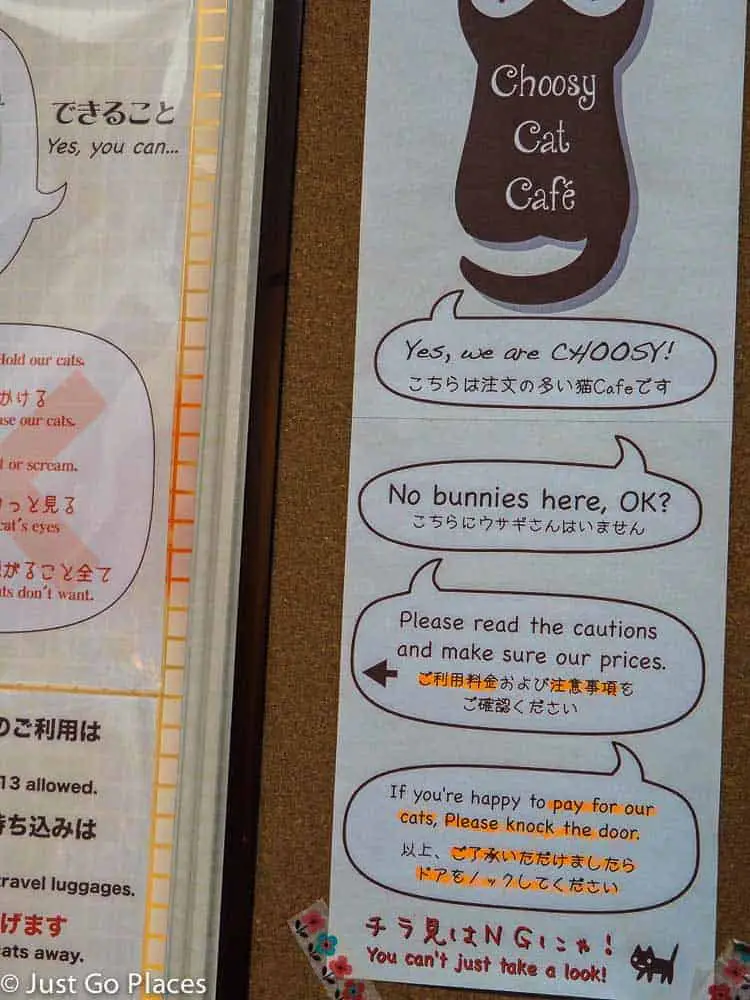 できること
Yes, you can...
Hold our cats.
かける
our cats.
or scream.
っと見る
cat's eyes
がること全て
don't want.
のご利用は
13 allowed.
ち込みは
travel luggages.
げます
cats away.
Choosy
Cat
Café
Yes, we are CHOOSY!
こちらは注文の多い猫Cafeです
No bunnies here, OK?
こちらにウサギさんはいません
Please read the cautions
and make sure our prices.
ご利用料金および注意事項を
ご確認ください
If you're happy to pay for our
cats, Please knock the door.
以上、ご了承いただけましたら
ドアをノックしてください
チラ見はNGにゃ!
You can't just take a look!
© Just Go Places